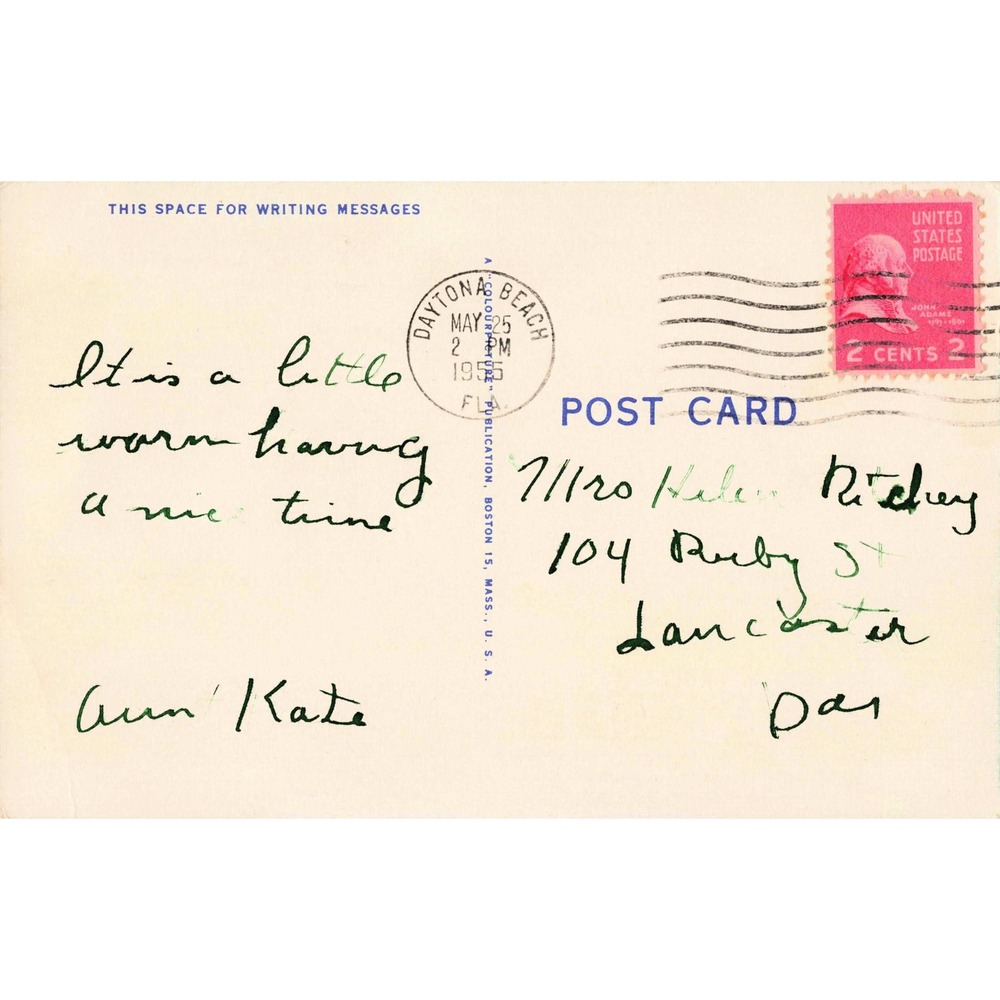 THIS SPACE FOR WRITING MESSAGES
UNITED
STATES
POSTAGE
JOHN
ADAMS
1797-1801
2 CENTS 2
DAYTONA BEACH
MAY 25
2 PM
1955
FLA.
A "COLOURPICTURE" PUBLICATION, BOSTON 15, MASS., U. S. A.
POST CARD
It is a little
warm having
a nice time
Kate
Mrs Helen Ritchey
104 Ruby St
Lancaster